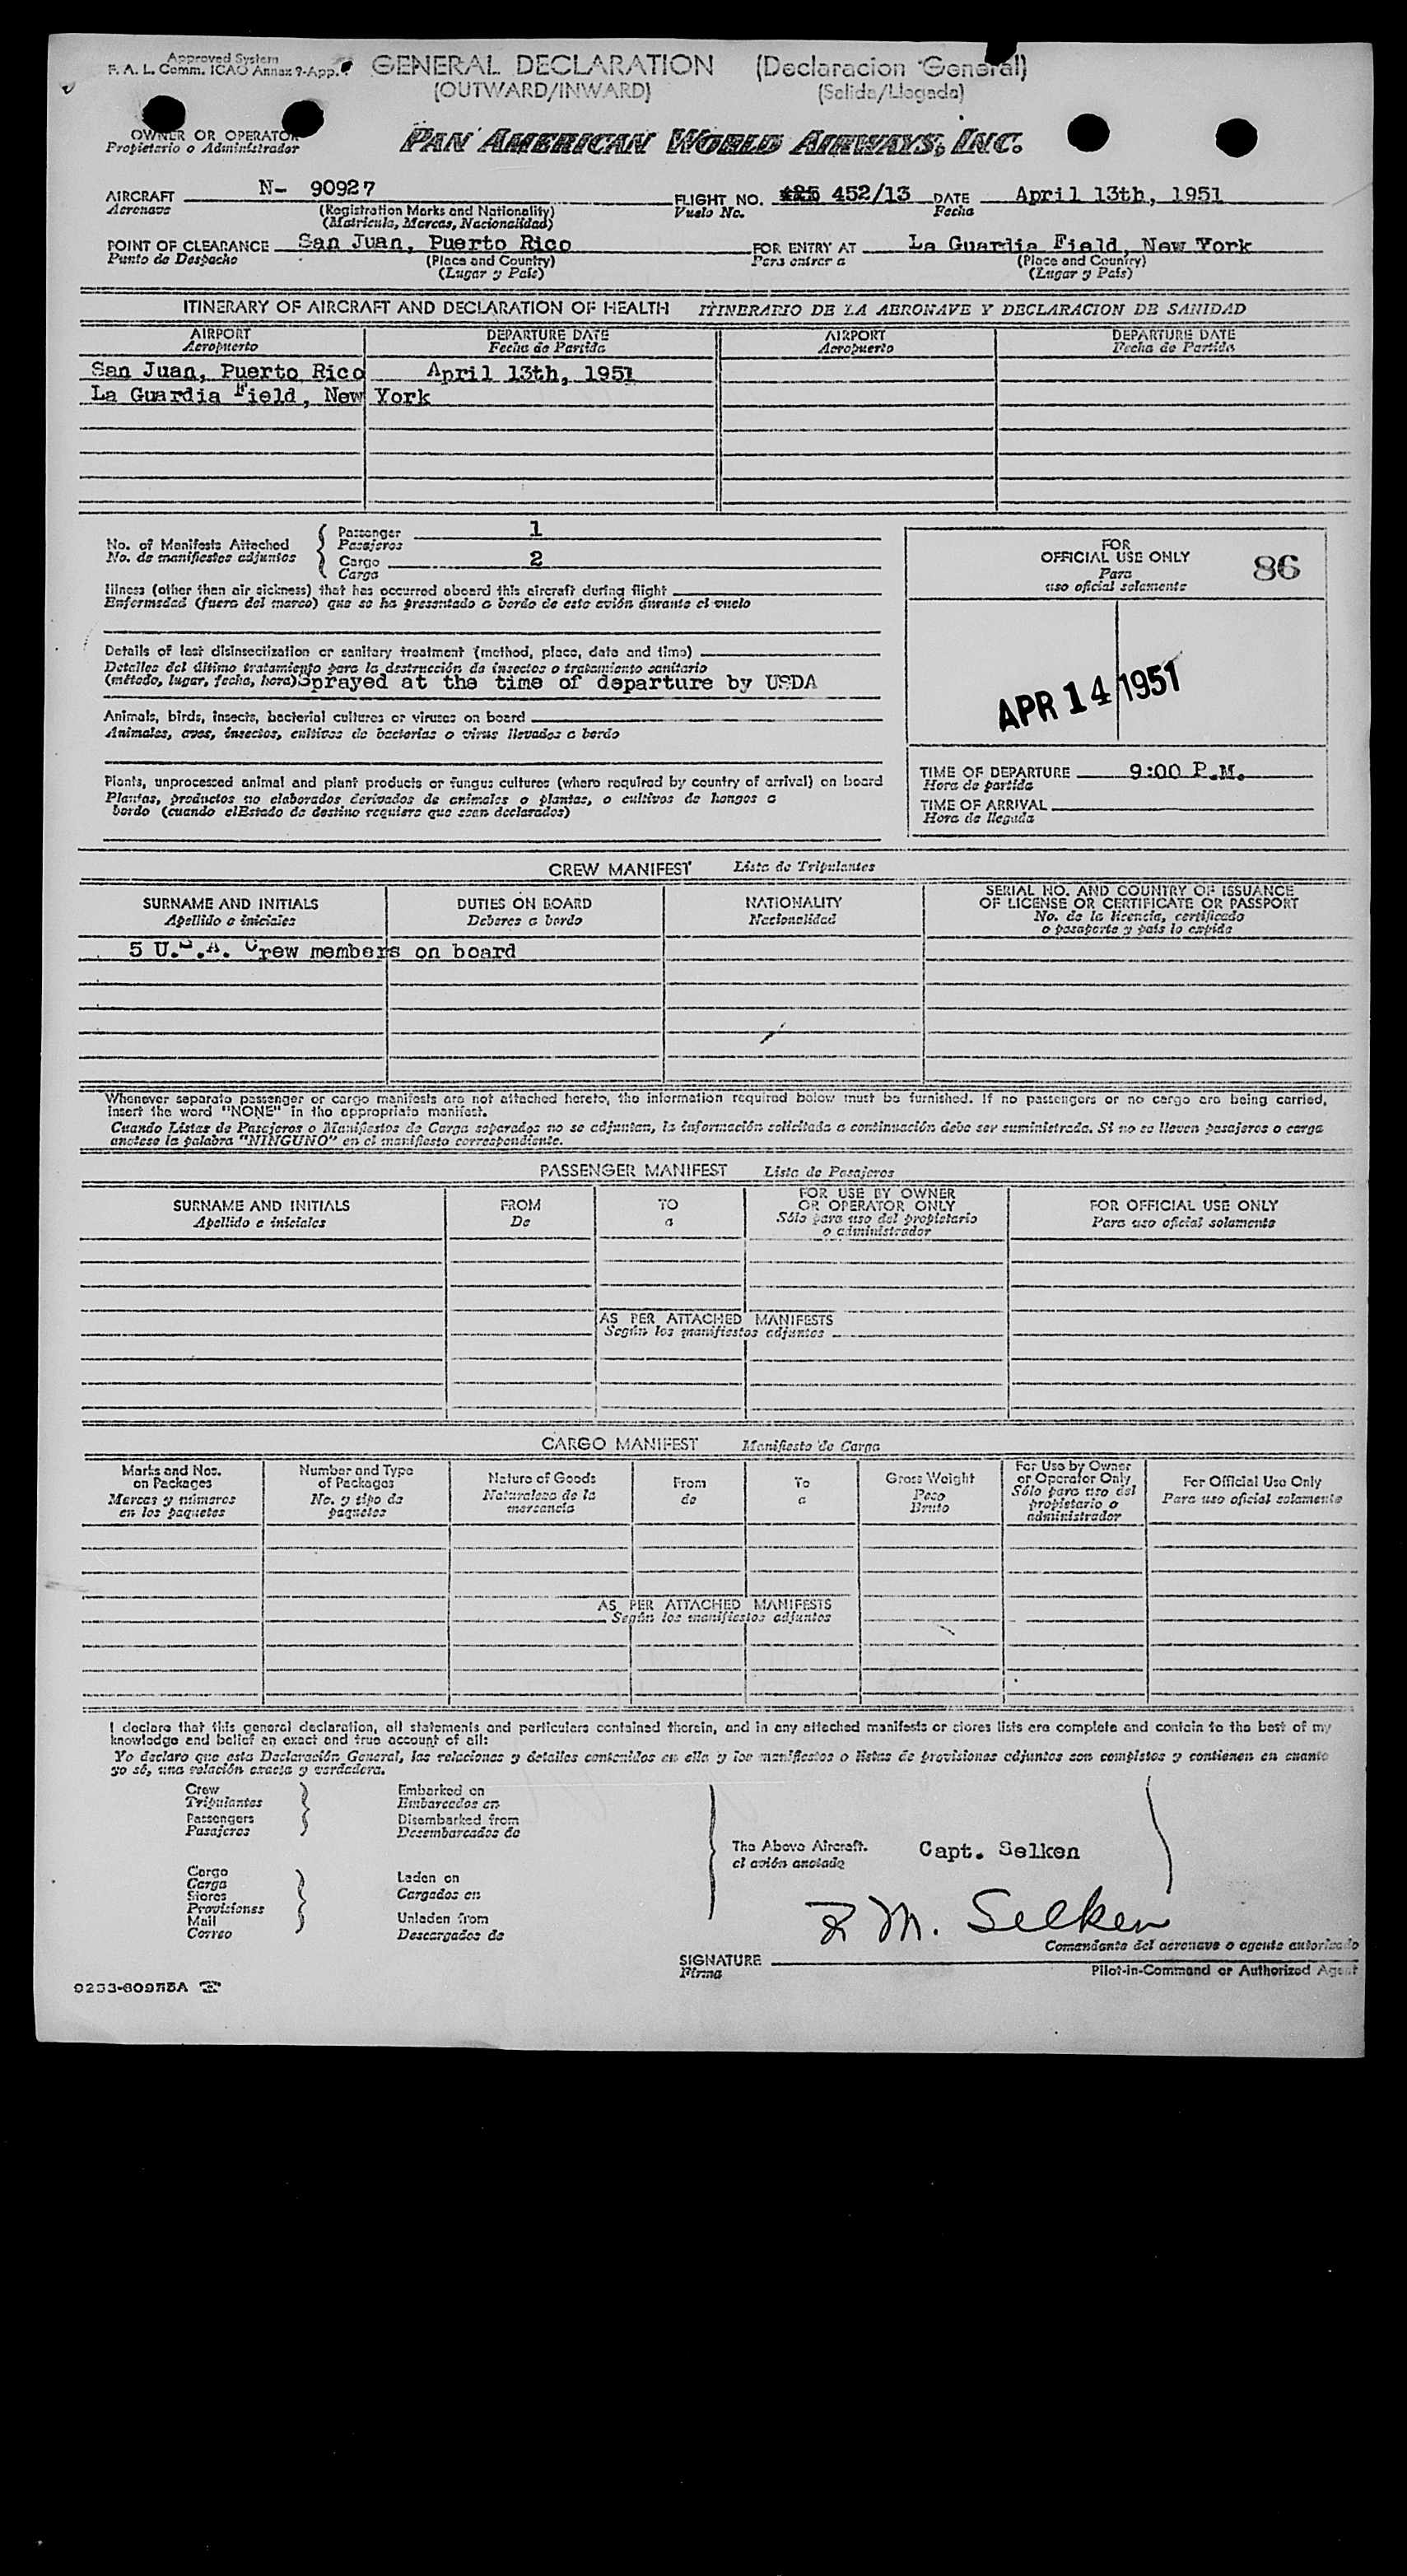 Approved System
F. A. L. Comm. ICAO Annex 9-App.
GENERAL DECLARATION (Declaracion General)
(OUTWARD/INWARD) (Salida/Llegada)
OWNER OR OPERATOR
Propietario o Administrador
PAN AMERICAN WORLD AIRWAYS, INC.
AIRCRAFT N- 90927 FLIGHT NO. 452/13 DATE April 13th, 1951
Aeronave (Registration Marks and Nationality) Vuelo No. Fecha
(Matricula, Marcas, Nacionalidad)
POINT OF CLEARANCE San Juan, Puerto Rico FOR ENTRY AT La Guardia Field, New York
Punto de Despacho (Place and Country) Para entrar a (Place and Country)
(Lugar y País) (Lugar y País)
ITINERARY OF AIRCRAFT AND DECLARATION OF HEALTH ITINERARIO DE LA AERONAVE Y DECLARACION DE SANIDAD
AIRPORT DEPARTURE DATE AIRPORT DEPARTURE DATE
Aeropuerto Fecha de Partida Aeropuerto Fecha de Partida
San Juan, Puerto Rico April 13th, 1951
La Guardia Field, New York
No. of Manifests Attached
No. de manifiestos adjuntos
Passenger 1
Pasajeros
Cargo 2
Carga
FOR
OFFICIAL USE ONLY
Para
uso oficial solamente
86
Illness (other than air sickness) that has occurred aboard this aircraft during flight
Enfermedad (fuera del mareo) que se ha presentado a bordo de este avión durante el vuelo
Details of last disinsectization or sanitary treatment (method, place, date and time)
Detalles del último tratamiento para la destrucción de insectos o tratamiento sanitario
(método, lugar, fecha, hora) Sprayed at the time of departure by USDA
APR 14 1951
Animals, birds, insects, bacterial cultures or viruses on board
Animales, aves, insectos, cultivos de bacterias o virus llevados a bordo
Plants, unprocessed animal and plant products or fungus cultures (where required by country of arrival) on board
Plantas, productos no elaborados derivados de animales o plantas, o cultivos de hongos a
bordo (cuando elEstado de destino requiere que sean declarados)
TIME OF DEPARTURE 9:00 P.M.
Hora de partida
TIME OF ARRIVAL
Hora de llegada
CREW MANIFEST Lista de Tripulantes
SURNAME AND INITIALS DUTIES ON BOARD NATIONALITY SERIAL NO. AND COUNTRY OF ISSUANCE
OF LICENSE OR CERTIFICATE OR PASSPORT
Apellido e iniciales Deberes a bordo Nacionalidad No. de la licencia, certificado
o pasaporte y país lo expide
5 U.S.A. Crew members on board
Whenever separate passenger or cargo manifests are not attached hereto, the information required below must be furnished. If no passengers or no cargo are being carried,
insert the word "NONE" in the appropriate manifest.
Cuando Listas de Pasajeros o Manifiestos de Carga separados no se adjuntan, la información solicitada a continuación debe ser suministrada. Si no se lleven pasajeros o carga
anotese la palabra "NINGUNO" en el manifiesto correspondiente.
PASSENGER MANIFEST Lista de Pasajeros
SURNAME AND INITIALS FROM TO FOR USE BY OWNER
OR OPERATOR ONLY FOR OFFICIAL USE ONLY
Apellido e iniciales De a Sólo para uso del propietario
o administrador Para uso oficial solamente
AS PER ATTACHED MANIFESTS
Según los manifiestos adjuntos
CARGO MANIFEST Manifiesto de Carga
Marks and Nos.
on Packages
Marcas y números
en los paquetes
Number and Type
of Packages
No. y tipo de
paquetes
Nature of Goods
Naturaleza de la
mercancía
From
de
To
a
Gross Weight
Peso
Bruto
For Use by Owner
or Operator Only
Sólo para uso del
propietario o
administrador
For Official Use Only
Para uso oficial solamente
AS PER ATTACHED MANIFESTS
Según los manifiestos adjuntos
I declare that this general declaration, all statements and particulars contained therein, and in any attached manifests or stores lists are complete and contain to the best of my
knowledge and belief an exact and true account of all:
Yo declaro que esta Declaración General, las relaciones y detalles contenidos en ella y los manifiestos o listas de provisiones adjuntos son completos y contienen en cuanto
yo sé, una relación exacta y verdadera.
Crew
Tripulantes
Passengers
Pasajeros
Embarked on
Embarcados en
Disembarked from
Desembarcados de
Cargo
Carga
Stores
Provisiones
Mail
Correo
Laden on
Cargados en
Unladen from
Descargados de
The Above Aircraft.
el avión anotado
Capt. Selken
R M. Selken
SIGNATURE
Firma
Comandante del aeronave o agente autorizado
Pilot-in-Command or Authorized Agent